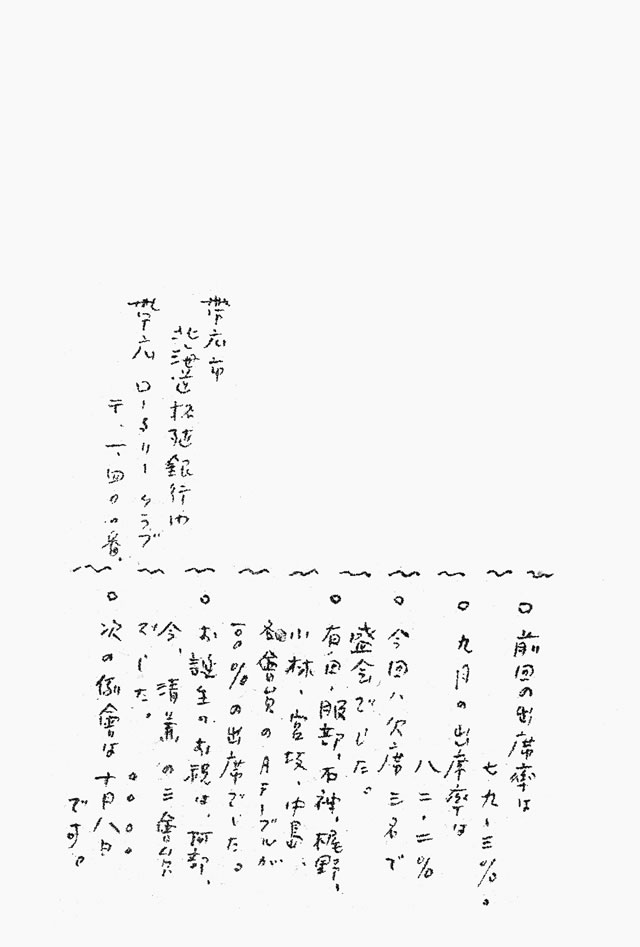 帯広市
北海道拓殖銀行内
帯広ロータリークラブ
テ、一、四〇〇番、
○前回の出席率は
七九・三%。
○九月の出席率は
八二・二%
○今回ハ欠席三名で
盛会でした。
○有田、服部、石神、梶野、
小林、宮坂、中島、
各會員のAテーブルが
百%の出席でした。
○お誕生のお祝は、阿部、
今、清義の三會員
でした。
○次の例會は十月八日
です。